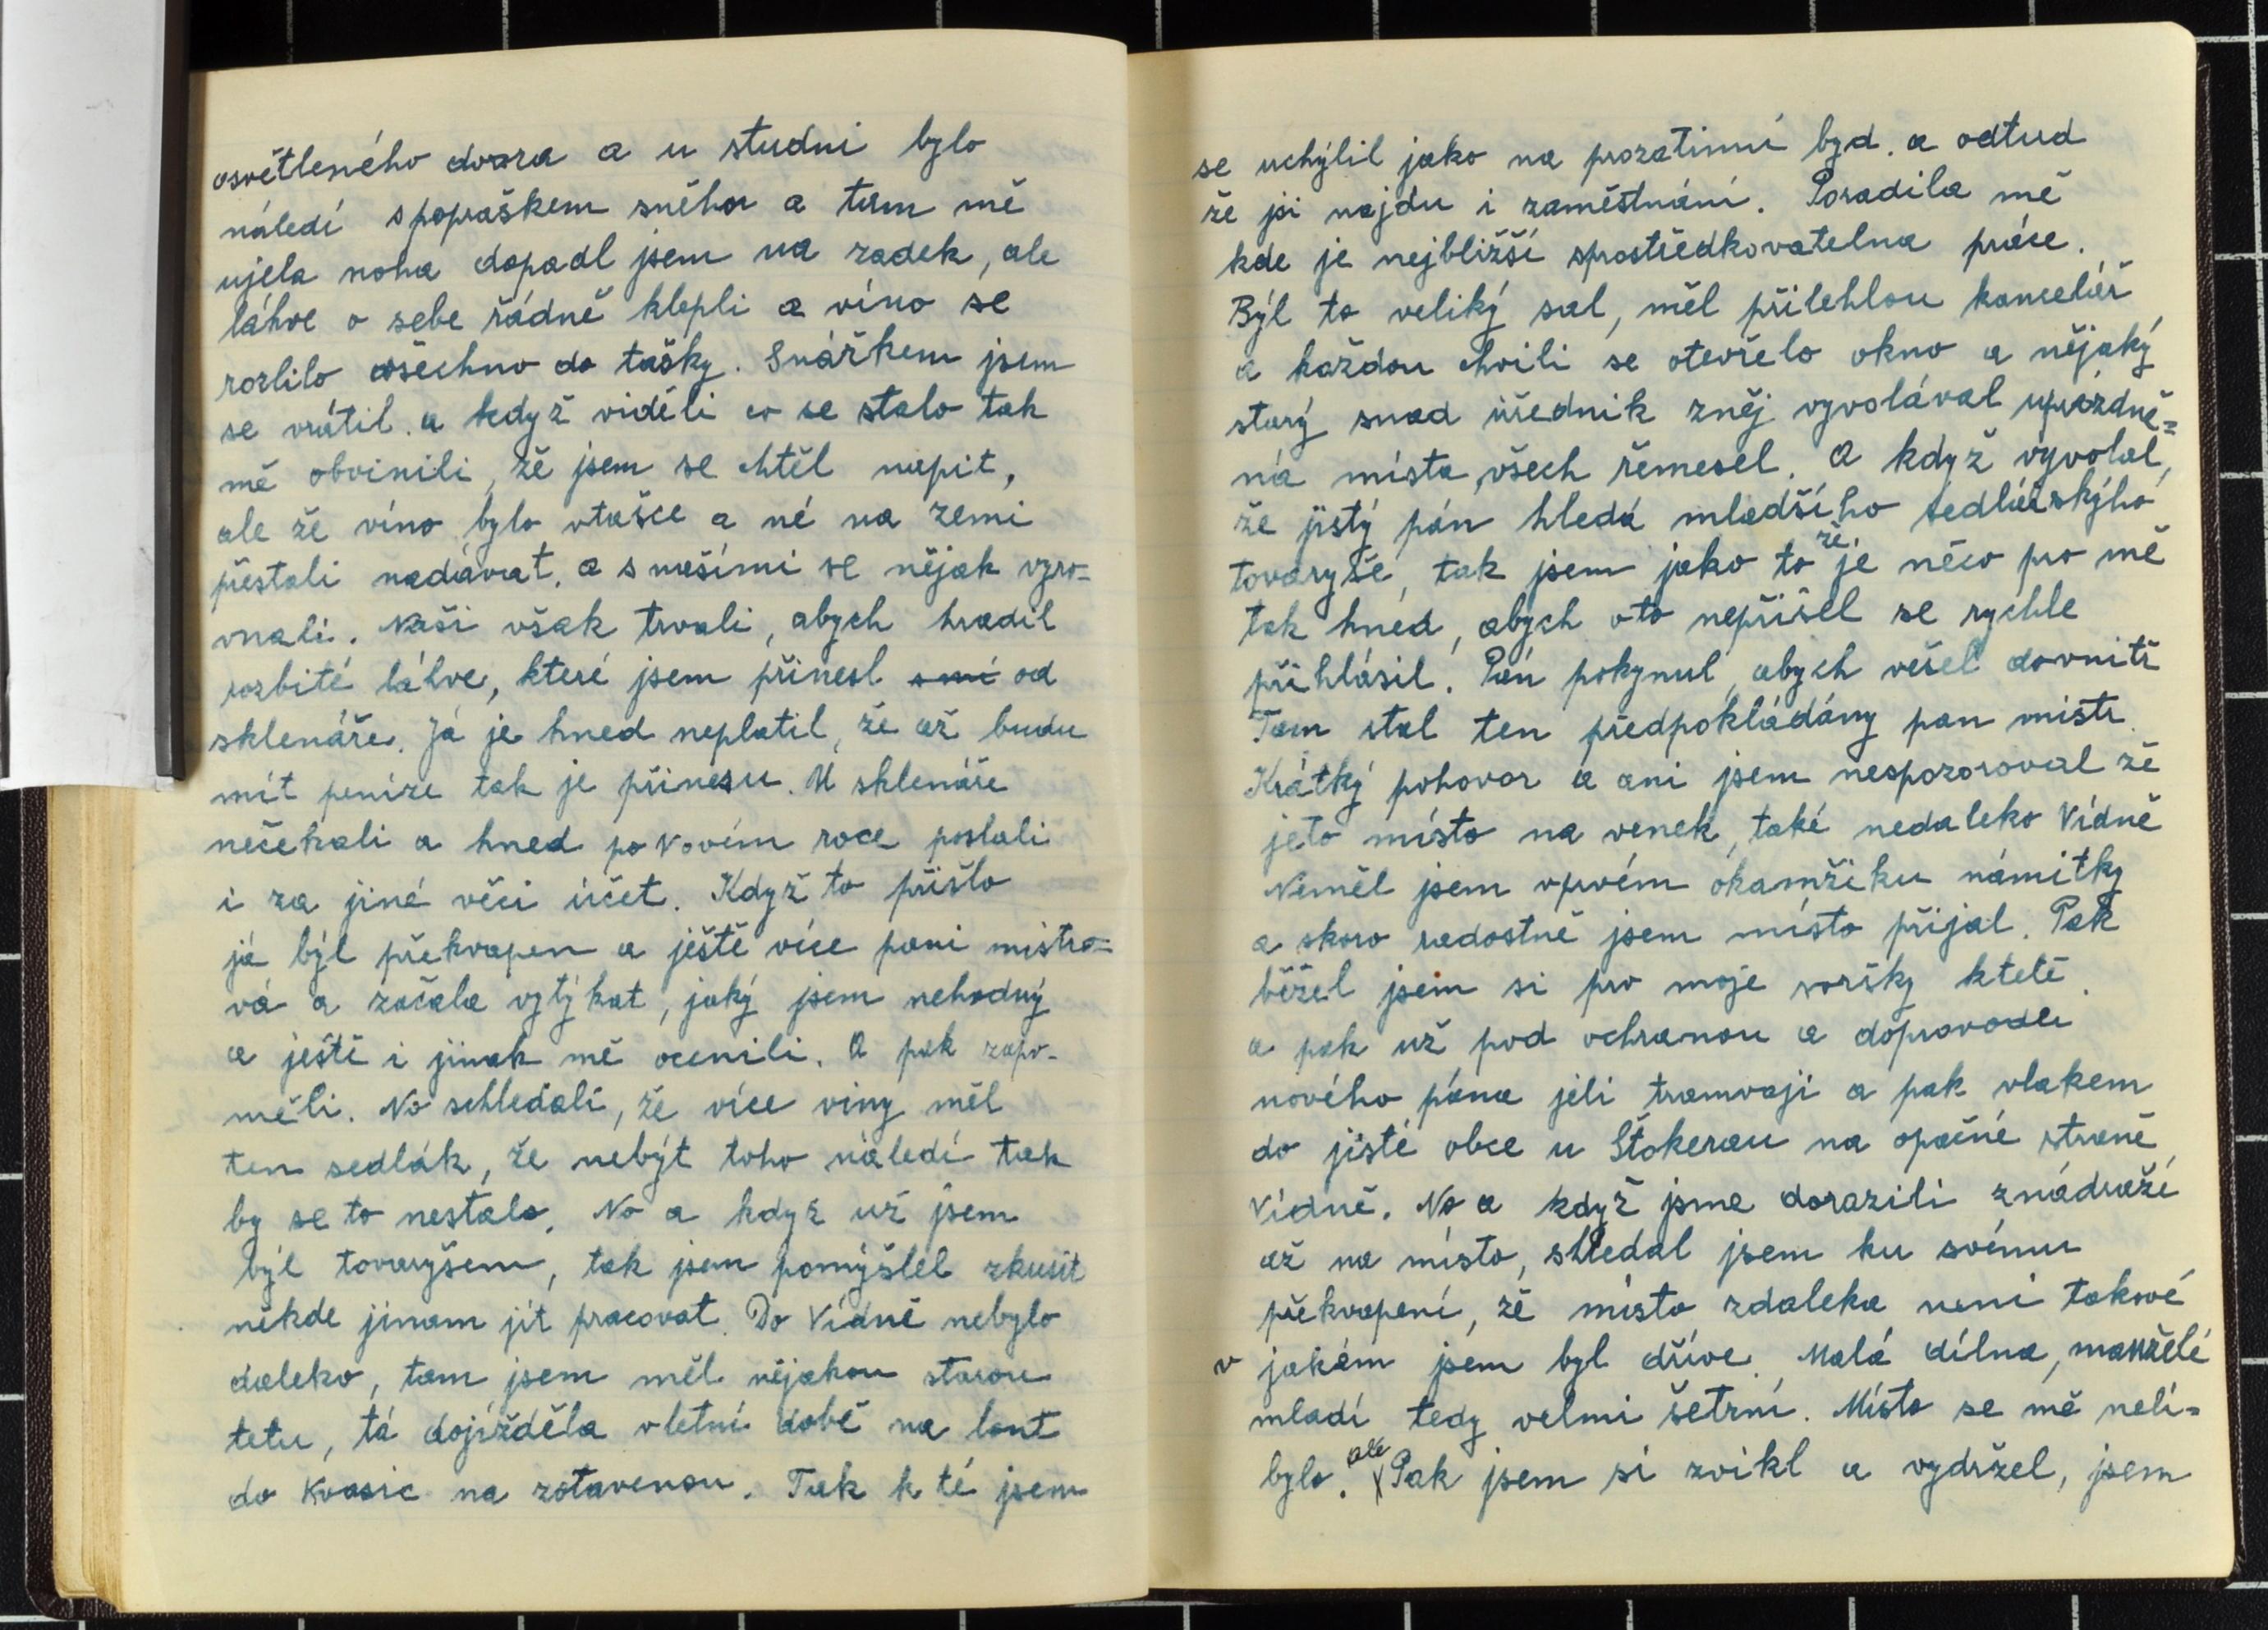 osvětleného dvora a u studni bylo
náledí s popraškem sněhu a tam mě
ujela noha dopadl jsem na zadek, ale
láhve o sebe řádně klepli a víno se
rozlilo všechno do tašky. Snářkem jsem
se vrátil a když viděli co se stalo tak
mě obvinili, že jsem se chtěl napit,
ale že víno bylo vtašce a né na zemi
přestali nadávat, a s našími se nějak vyro-
vnali. Naši však trvali, abych hradil
rozbité láhve, které jsem přinesl od
sklenáře. Já je hned neplatil, že až budu
mít peníze tak je přinesu. U sklenáře
nečekali a hned po Novém roce poslali
i za jiné věci účet. Když to přišlo
já býl překvapen a ještě více pani mistro=
vá a začala vytýkat, jaký jsem nehodný
a ještě i jinak mě ocenili. A pak zapo-
měli. No schledali, že více viny měl
ten sedlák, že nebýt toho náledí tak
by se to nestalo. No a když už jsem
býl tovaryšem, tak jsem pomýšlel zkusit
někde jinam jít pracovat. Do Vídně nebylo
daleko, tam jsem měl nějakou starou
tetu, tá dojížděla vletní době na lont
do Kvasic na zotavenou. Tak k té jsem
se uchýlil jako na prozatimní byd. a odtud
že jsi najdu i zaměstnání. Poradila mě
kde je nejbližší sprostředkovatelna práce.
Býl to veliký sal, měl přilehlou kancelář
a každou chvili se otevřelo okno a nějaký
starý snad úředník zněj vyvolával uprázdně=
ná místa všech řemesel. A když vyvolal,
že jistý pán hledá mladšího sedlářskýho
tovaryše, tak jsem jako to že je něco pro mě
tak hned, abych oto nepřišel se rychle
přihlásil. Pán pokynul, abych vešel dovnitř
Tam stal ten předpokládány pan mistr.
Krátký pohovor a ani jsem nespozoroval že
jeto místo na venek, také nedaleko Vídně
Neměl jsem vprvém okamžiku námitky
a skoro radostně jsem místo přijal. Pak
běžel jsem si pro moje voršky k tetě
a pak už pod ochranou a doprovodu
nového pána jeli tramvaji a pak vlakem
do jisté obce u Štokerau na opačné straně
Vídně. No a když jsme dorazili znádraží
až na místo, shledal jsem ku svému
překvapení, že místo zdaleka neni takové
v jakém jsem byl dříve. Malá dílna, manželé
mladí tedy velmi šetrní. Místo se mě neli=
bylo. ale Pak jsem si zvikl a vydržel, jsem